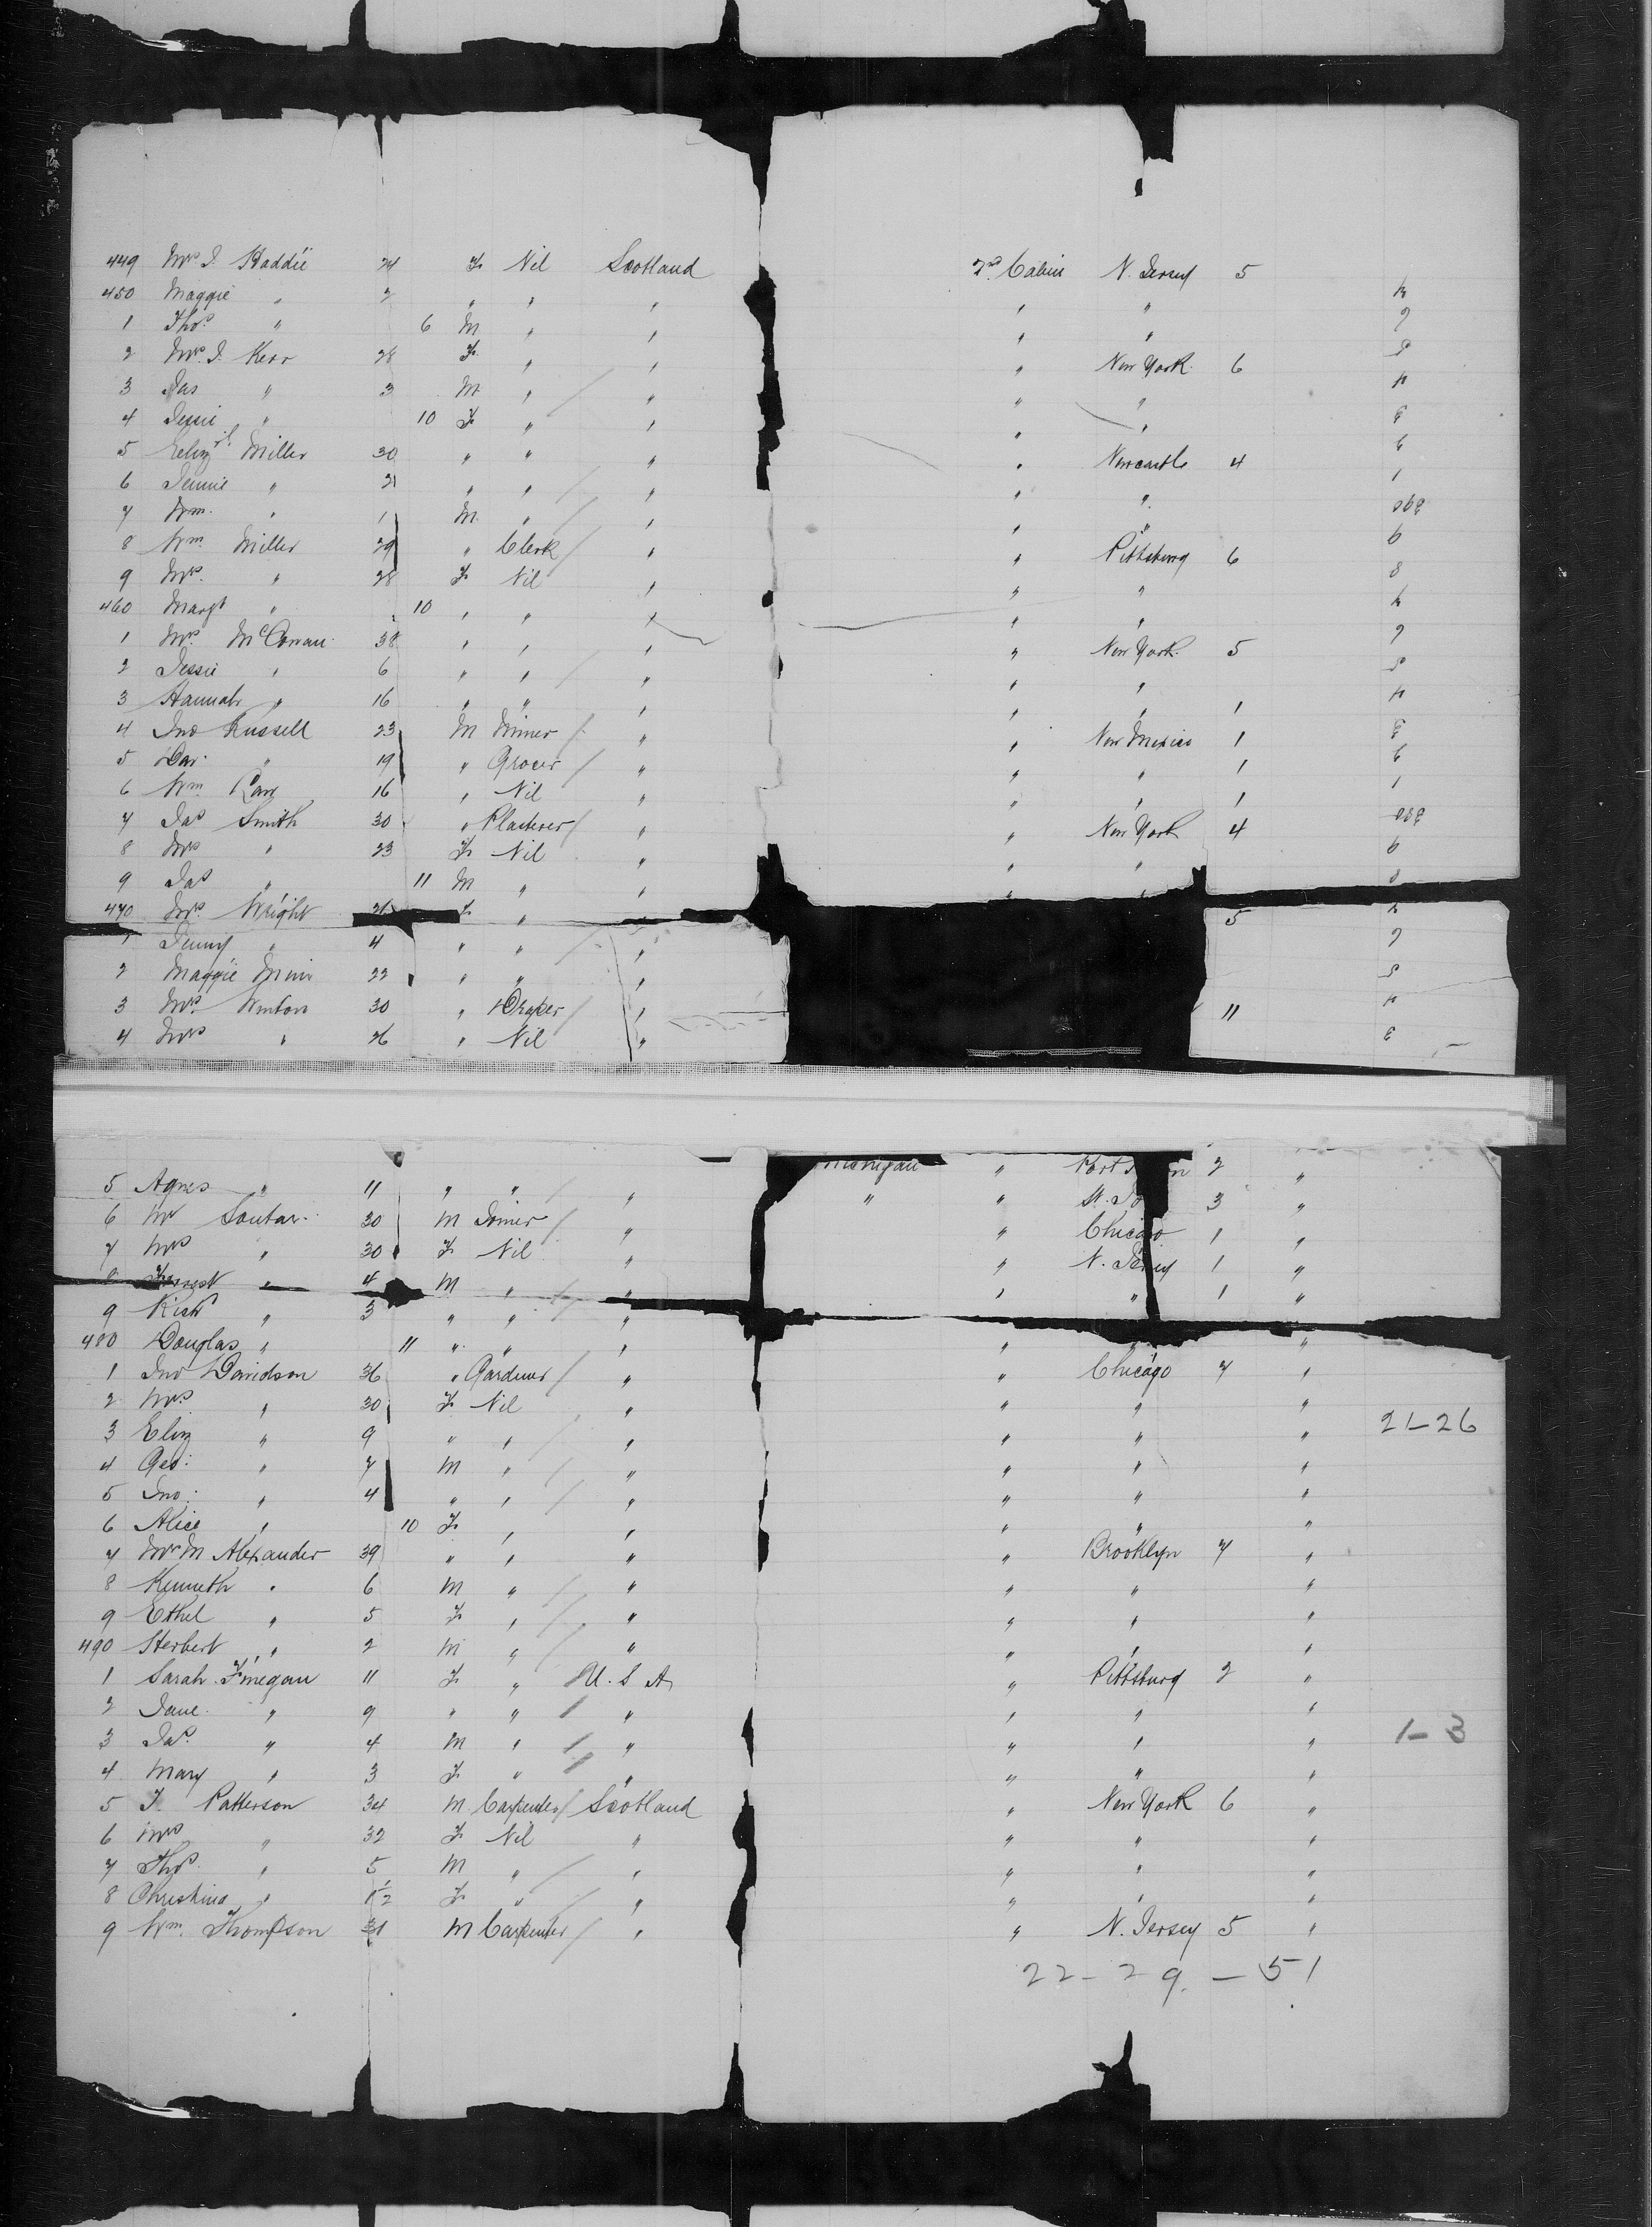 449 Mrs J. Haddie 24 F Nil Scotland 2nd Cabin N. Jersey 5
450 Maggie " 2 " " " " "
1 Thos " 6 M " " " "
2 Mrs J. Kerr 28 F " " " New York 6
3 Jas " 3 M " " " "
4 Jessie " 10 F " " " "
5 Elizth Miller 30 " " " " Newcastle 4
6 Jennie " 21 " " " " "
7 Wm " 1 M " " " "
8 Wm Miller 29 " Clerk " " Pittsburg 6
9 Mrs " 28 F Nil " " "
460 Margt " 10 " " " " "
1 Mrs McCowan 38 " " " " New York 5
2 Jessie " 6 " " " " "
3 Hannah " 16 " " " " " 1
4 Jno Russell 23 M Miner " " New Mexico 1
5 Dav. " 19 " Grocer " " " 1
6 Wm 16 " Nil " " " 1
7 Jas Smith 30 " Plasterer " " New York 4
8 Mrs " 23 F Nil " " "
9 Jas " 11 M " " " "
470 Mrs Wright F " " 5
1 Jenny " 4 " " "
2 Maggie 22 " " "
3 Mrs Winton 30 " Draper " 11
4 Mrs " 26 " Nil "
5 Agnes " 11 " " " " 2 "
6 Mr Soutar 30 M Joiner " " " 3 "
7 Mrs " 30 F Nil " " Chicago 1 "
8 " 4 M " " " N. Jersey 1 "
9 " 3 " " " " " 1 "
480 Douglas " 11 " " " " " "
1 Jno Davidson 36 " Gardener " " Chicago 7 "
2 Mrs " 30 F Nil " " " "
3 Eliz " 9 " " " " " " 21-26
4 Geo: " 7 M " " " " "
5 Jno: " 4 " " " " " "
6 Alice " 10 F " " " " "
7 Mrs M Alexander 39 " " " " Brooklyn 7 "
8 Kenneth " 6 M " " " " "
9 Ethel " 5 F " " " " "
490 Herbert " 2 M " " " " "
1 Sarah Finegan 11 F " U.S.A. " Pittsburg 2 "
2 Jane " 9 " " " " " "
3 Jas " 4 M " " " " " 1-3
4 Mary " 3 F " " " " "
5 J. Patterson 34 M Carpenter Scotland " New York 6 "
6 Mrs " 32 F Nil " " " "
7 Thos " 5 M " " " " "
8 Christina " F " " " " "
9 Wm. Thompson 31 M Carpenter " " N. Jersey 5 "
22-29-51